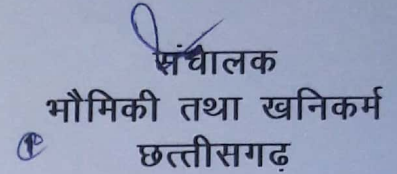 संचालक
भौमिकी तथा खनिकर्म
छत्तीसगढ़